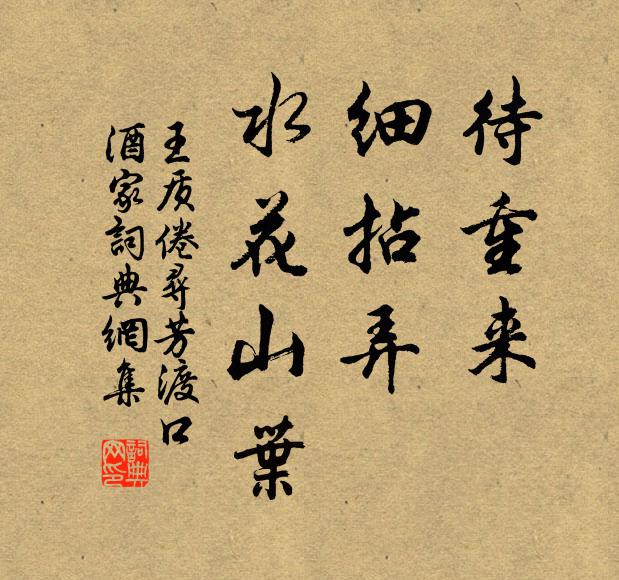 待重来
细拈弄
水花山葉
王质倦尋芳渡口
酒家詞典網集
詞典網印